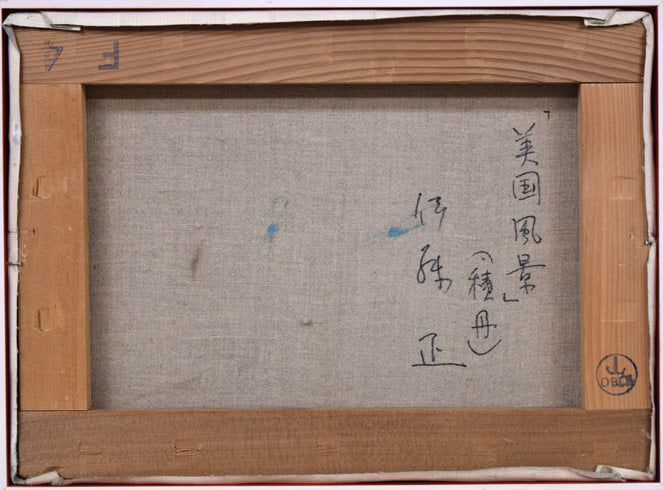 「美国風景」
(積丹)
伊藤 正
F 4